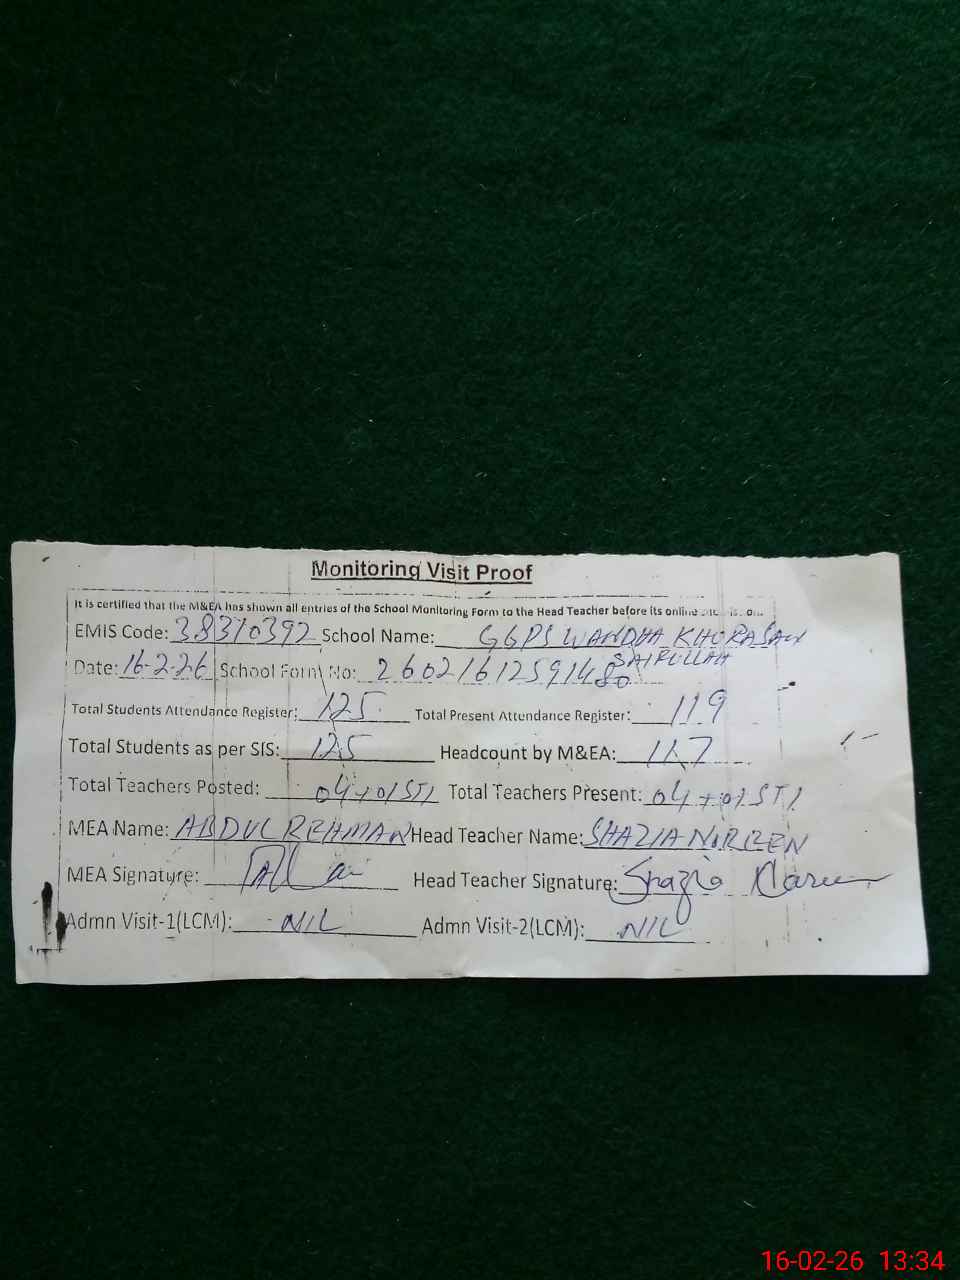 Monitoring Visit Proof
It is certified that the M&EA has shown all entries of the School Monitoring Form to the Head Teacher before its online
EMIS Code: 38310392 School Name: GGPS WANDHA KHORASAN
SAIFULLAH
Date: 16-2-26 School Form No: 26021612591480
Total Students Attendance Register: 125 Total Present Attendance Register: 119
Total Students as per SIS: 125 Headcount by M&EA: 117
Total Teachers Posted: 04+01 STI Total Teachers Present: 04+01 STI
MEA Name: ABDUL REHMAN Head Teacher Name: SHAZIA NOREEN
MEA Signature: Head Teacher Signature: Shazia
Admn Visit-1(LCM): NIL Admn Visit-2(LCM): NIL
16-02-26 13:34